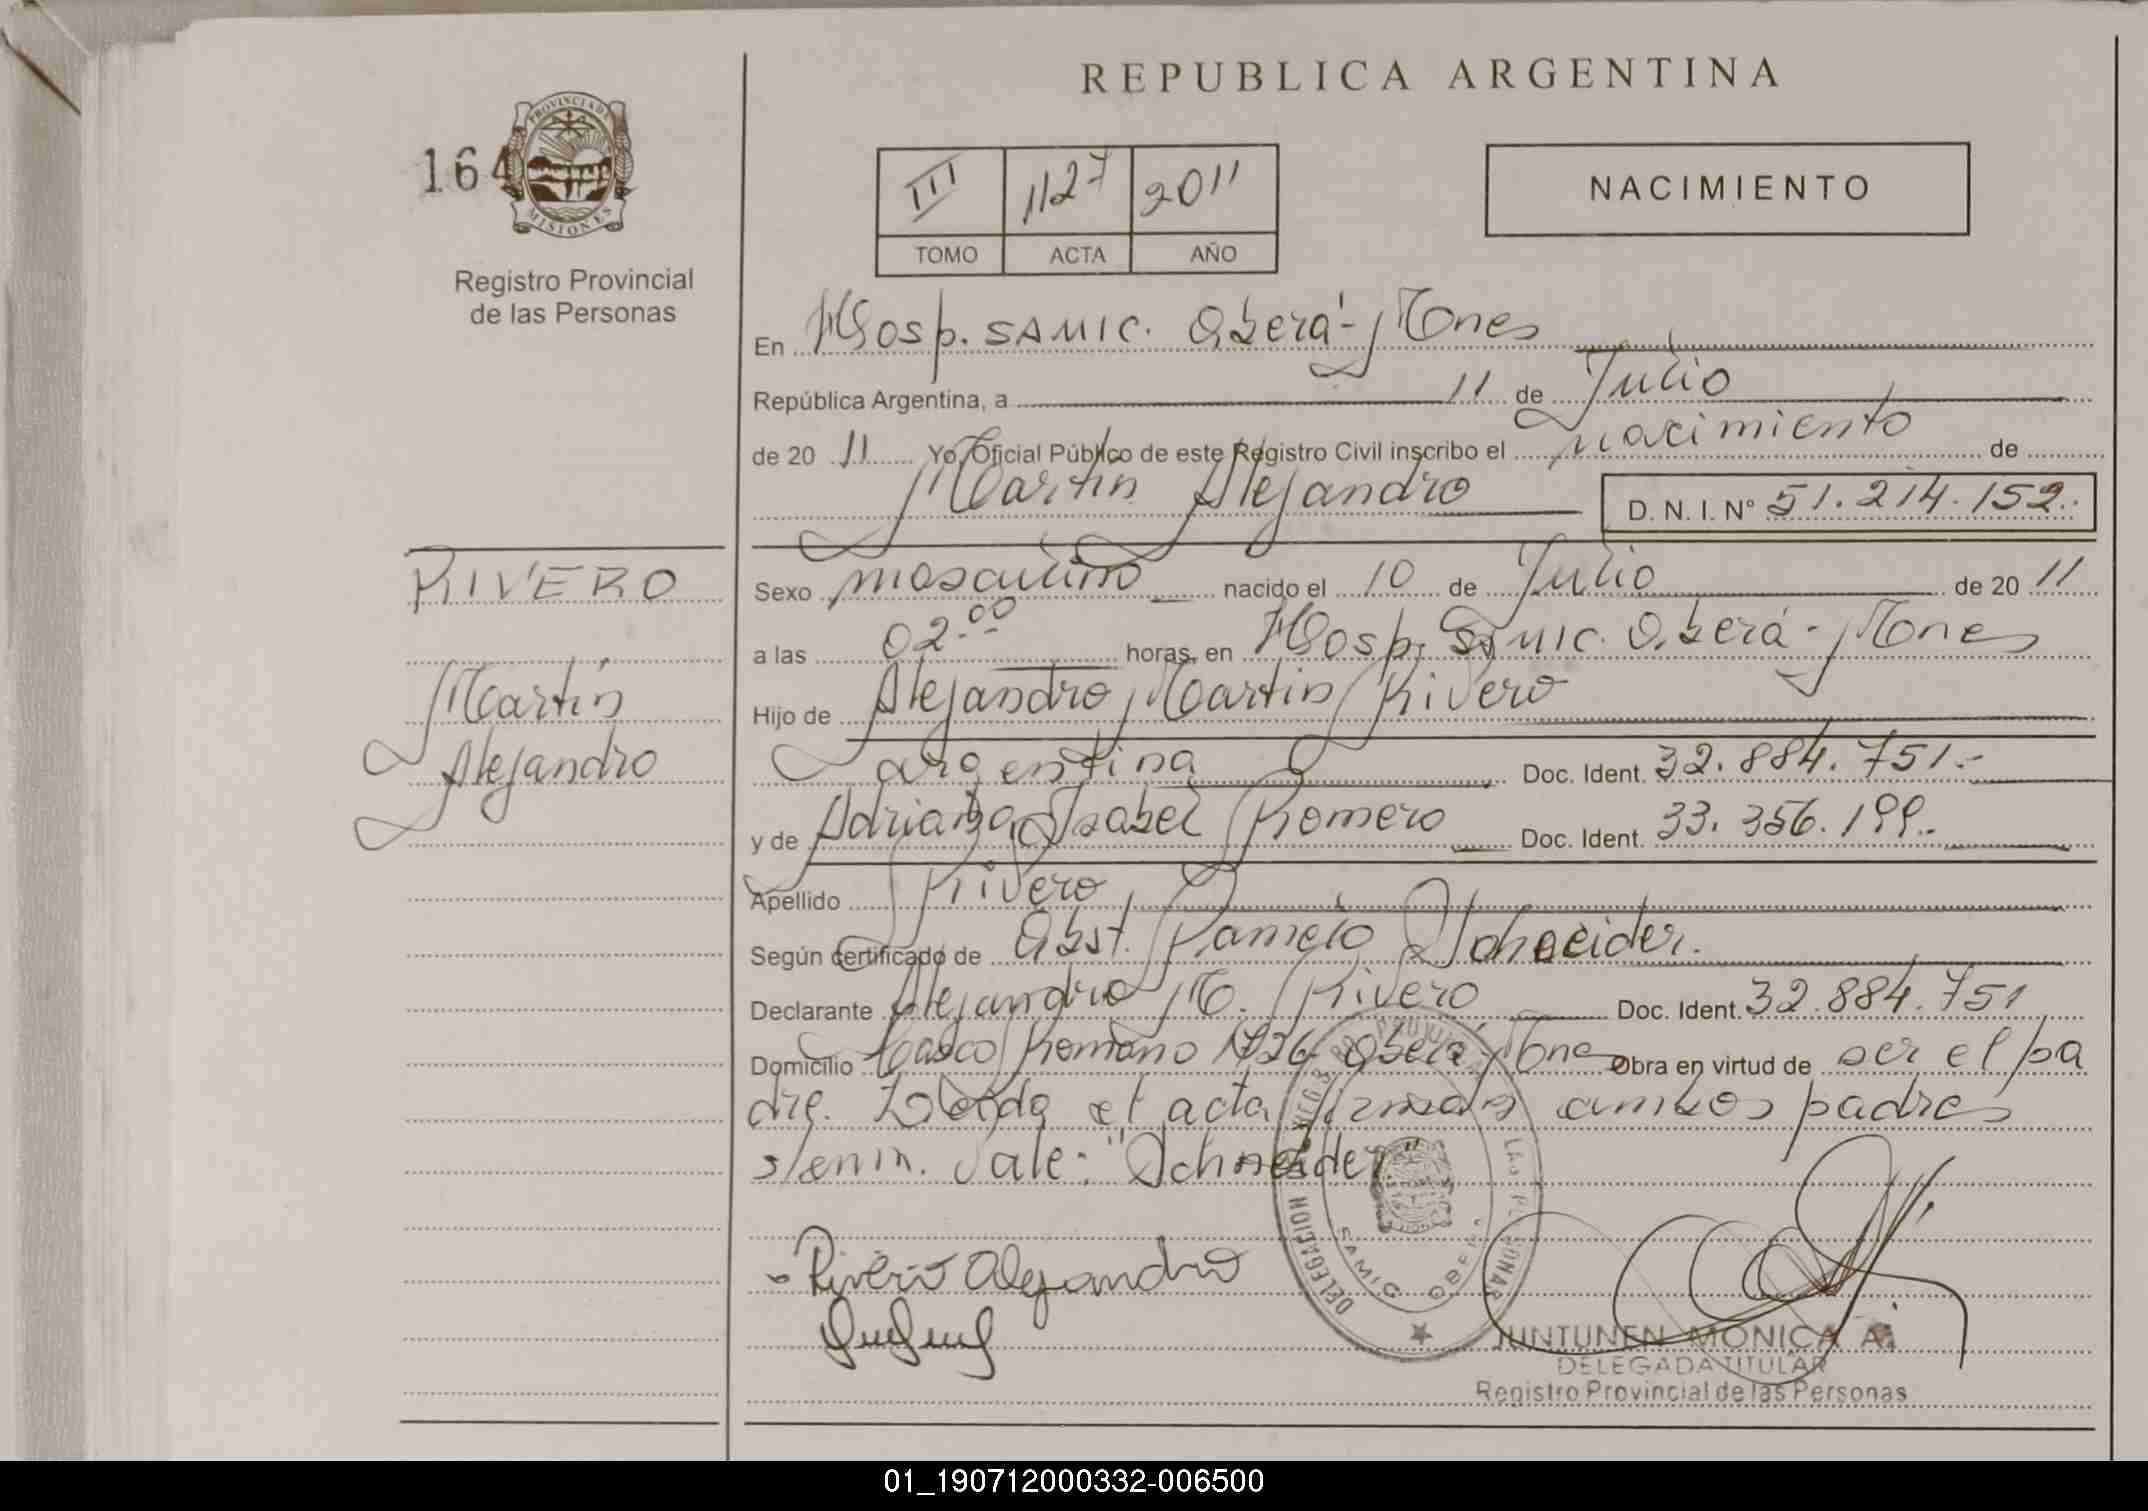 REPUBLICA ARGENTINA
164
PROVINCIA DE
MISIONES
Registro Provincial
de las Personas
III 1127 2011
TOMO ACTA AÑO
NACIMIENTO
En Hosp. SAMIC. Oberá-Mnes
República Argentina, a 11 de Julio
de 20 11 Yo, Oficial Público de este Registro Civil inscribo el nacimiento de
Martín Alejandro D. N. I. N° 51.214.152.
RIVERO
Martín
Alejandro
Sexo masculino nacido el 10 de Julio de 20 11
a las 02.00 horas, en Hosp. SAMIC. Oberá-Mnes
Hijo de Alejandro Martin Rivero
argentina Doc. Ident. 32.884.751.-
y de Adriana Isabel Romero Doc. Ident. 33.356.199.-
Apellido Rivero
Según certificado de Obst. Pamela Schneider.
Declarante Alejandro M. Rivero Doc. Ident. 32.884.751
Domicilio Casco Romano Oberá-Mnes Obra en virtud de ser el pa
dre. Leída el acta firman ambos padres
s/enm. Vale: "Schneider"
Rivero Alejandro
DELEGACION
SAMIC OBERA
JUNTUNEN MONICA A.
DELEGADA TITULAR
Registro Provincial de las Personas
01_190712000332-006500